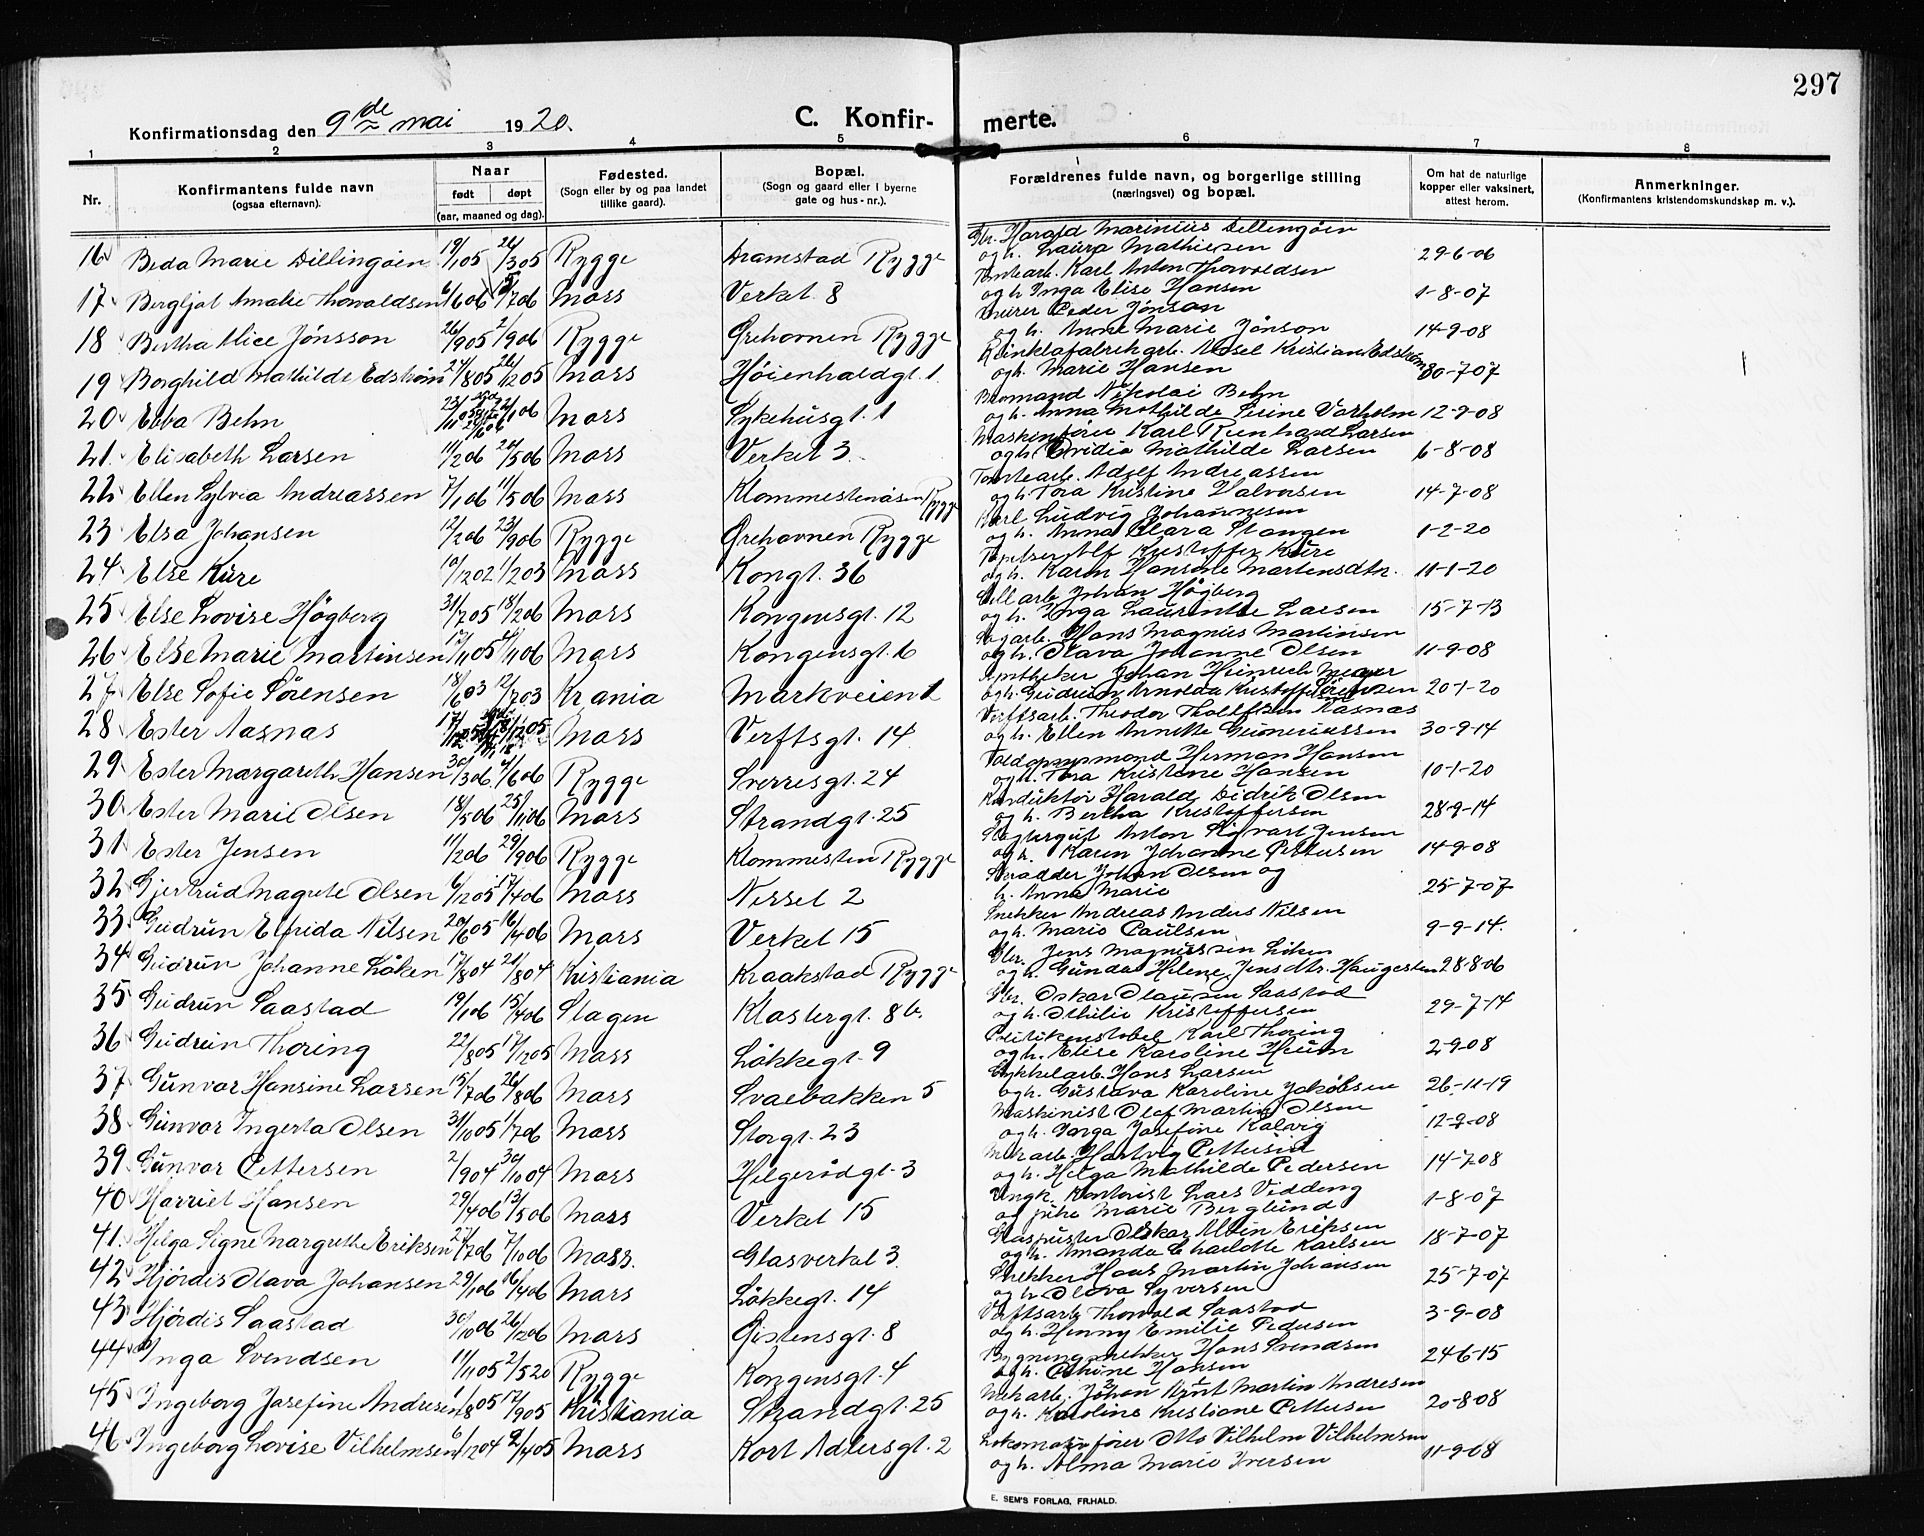 297
Konfirmationsdag den 9de mai 1920.
C. Konfir- merte.
1 2 3 4 5 6 7 8
Nr. Konfirmantens fulde navn (ogsaa efternavn). Naar født døpt (aar, maaned og dag). Fødested. (Sogn eller by og paa landet tillike gaard). Bopæl. (Sogn og gaard eller i byerne gate og hus-nr.). Forældrenes fulde navn, og borgerlige stilling (næringsvei) og bopæl. Om hat de naturlige kopper eller vaksinert, attest herom. Anmerkninger. (Konfirmantens kristendomskundskap m. v.).
16 Beda Marie Dillingøen 19/1 05 26/3 05 Rygge Dramstad Rygge Gbr. Harald Marinius Dillengøen
og h. Laura Mathiesen 29-6-06
17 Bergljot Amalie Thorvaldsen 6/6 06 Moss Verket 8 Tomtearb. Karl Anton Thorvaldsen
og h. Inga Elise Hansen 1-8-07
18 Bertha Alice Jønsson 26/9 05 2/9 06 Rygge Ørehavnen Rygge Murer Peder Jönson
og h. Anne Marie Jönson 14-9-08
19 Borghild Mathilde Edström 24/8 05 26/12 05 Moss Høienhaldgt. 1 Axsel Kristian Edström
og h. Marie Hansen 30-7-07
20 Ebba Behn Moss Sykehusgt. 1 Nikolai Behn
og h. Anna Mathilde Varholm 12-9-08
21 Elisabeth Larsen 11/2 06 20/5 06 Moss Verket 3. Maskinfører Karl Reinhard Larsen
og h. Ovidia Mathilde Larsen 6-8-08
22 Ellen Sylvia Andreassen 7/1 06 11/5 06 Moss Klommestenåsen Rygge Tomtearb. Adolf Andreassen
og h. Tora Kristine Halvorsen 14-7-08
23 Elsa Johansen 12/2 06 23/9 06 Rygge Ørehavnen Rygge Karl Ludvig Johannesen
og h. Anna Klara Stangen 1-2-20
24 Else Kure 10/12 02 1/2 03 Moss Kongt. 36 Alf Kristoffer Kure
og h. Karen Hansine Martensdtr. 11-1-20
25 Else Lovise Högberg 31/7 05 18/2 06 Moss Kongensgt. 12 Johan Högberg
og h. Inga Laurentse Larsen 15-7-13
26 Else Marie Martinsen Moss Kongensgt. 6 Sagarb. Hans Magnus Martinsen
og h. Olava Johanne Olsen 11-9-08
27 Else Sofie Sörensen 18/6 03 12/7 03 Krania Markveien 1 Apotheker Johan Heinrich Meyer
og h. Gudrun Arnolda Kristoffa Sörensen 20-1-20
28 Ester Aasnas Moss Verftsgt. 14 Verftsarb. Theodor Tholefsen Aasnæs
og h. Ellen Annette Gunneriussen 30-9-14
29 Ester Margareth Hansen 30/3 06 4/6 06 Rygge Sverresgt. 24 Herman Hansen
og h. Tora Kristine Hansen 10-1-20
30 Ester Marie Olsen 18/5 06 25/11 06 Moss Strandgt. 25 Konduktør Harald Didrik Olsen
og h. Bertha Kristoffersen 28-9-14
31 Ester Jensen 11/2 06 29/9 06 Rygge Klommesten Rygge Anton Sigvart Jensen
og h. Karen Johanne Pettersen 14-9-08
32 Gjertrud Magrete Olsen 6/12 05 17/4 06 Moss Nessel 2 Johan Olsen og
h. Anna Marie 25-7-07
33 Gudrun Elfrida Nilsen 20/6 05 16/4 06 Moss Verket 15 Snekker Andreas Anders Nilsen
og h. Marie Paulsen 9-9-14.
34 Gudrun Johanne Löken 17/8 04 21/8 04 Kristiania Kraakstad Rygge Gbr. Jens Magnussen Löken
og h. Gunda Helene Jensdtr. Haugesten 28-8-06
35 Gudrun Saastad 19/1 06 15/4 06 Slagen Klostergt. 8b. Gbr. Oskar Olausen Saastad
og h. Othilie Kristoffersen 29-7-14
36 Gudrun Thoring 22/8 05 17/12 05 Moss Løkkegt. 9 Politikonstabel Karl Thoring
og h. Elise Karoline Hrum 2-9-08
37 Gunvor Hansine Larsen 15/7 06 26/8 06 Moss Svaebakken 5 Cykkelarb. Hans Larsen
og h. Gustava Karoline Jakobsen 26-11-19
38 Gunvor Ingerta Olsen 31/10 05 1/7 06 Moss Storgt. 23 Maskinist Olaf Martin Olsen
og h. Inga Josefine Kalvig 12-9-08
39 Gunvor Pettersen 2/9 04 30/10 04 Moss Helgerødgt. 3 Murarb. Hartvig Pettersen
og h. Helga Mathilde Pedersen 14-7-08
40 Harriet Hansen 29/4 06 13/5 06 Moss Verket 15 Ungk. Kontorist Lars Viddeng
og pike Marie Berglund 1-8-07
41. Helga Signe Margrethe Eriksen 27/7 06 7/10 06 Moss. Glasverket 3. Glaspuster Oskar Albin Eriksen
og h. Amanda Charlotte Karlsen 18-7-07
42 Hjördis Olava Johansen 29/1 06 16/4 06 Moss Løkkegt. 14 Snekker Hans Martin Johansen
og h. Olava Syversen 25-7-07
43 Hjördis Saastad 30/10 06 26/12 06 Moss Gistensgt. 8 Verftsarb. Thorvald Saastad
og h. Henny Emilie Pedersen 3-9-08
44 Inga Svendsen 11/11 05 2/5 20 Rygge Kongensgt. 4 Bygningssnekker Hans Svendsen
og h. Hansen 24-6-15
45 Ingeborg Josefine Andresen 1/8 05 17/9 05 Kristiania Strandgt. 25 Mekarb. Johan Knut Martin Andresen
og h. Karoline Kristiane Pettersen 20-8-08
46 Ingeborg Lovise Vilhelmsen 6/12 04 2/4 05 Moss Kort Adlersgt. 2 Lokomotivfører Otto Vilhelm Vilhelmsen
og h. Alma Marie Iversen 11-9-08
E. SEM'S FORLAG, FR.HALD.